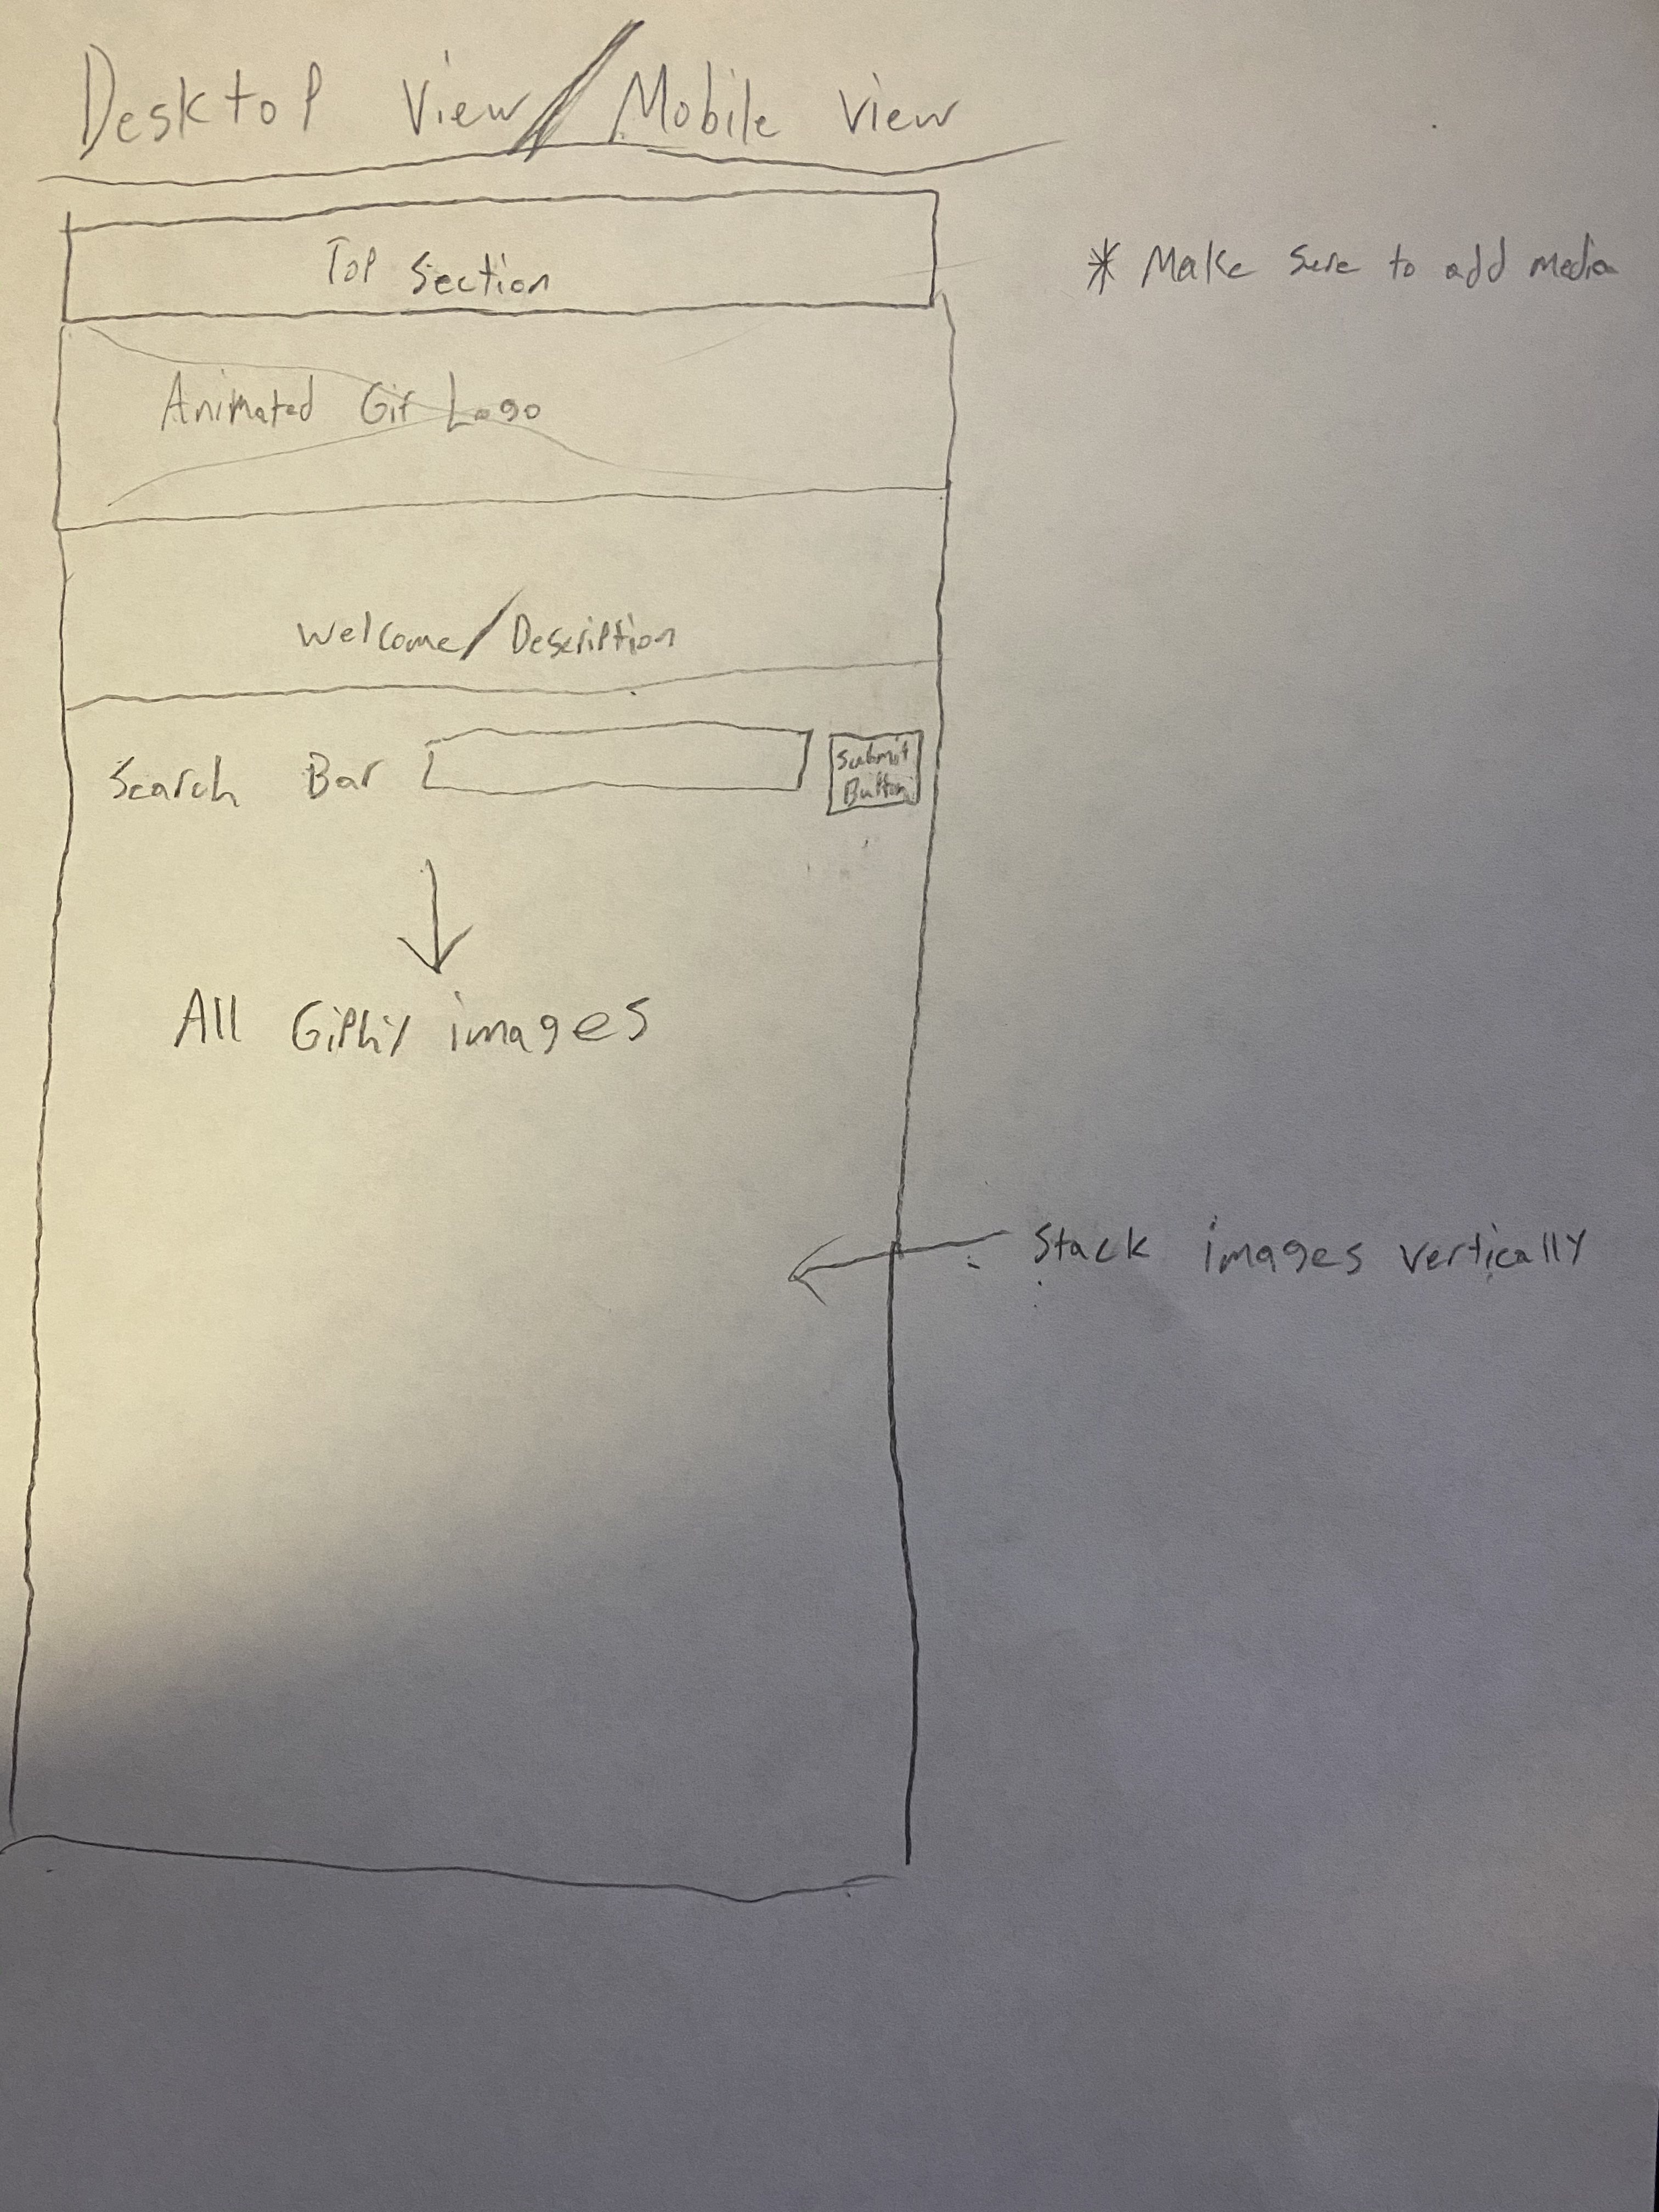 Desktop View / Mobile View
Top Section
* Make sure to add media
Animated Gif Logo
Welcome / Description
Search Bar
Submit
Button
All Giphy images
Stack images vertically